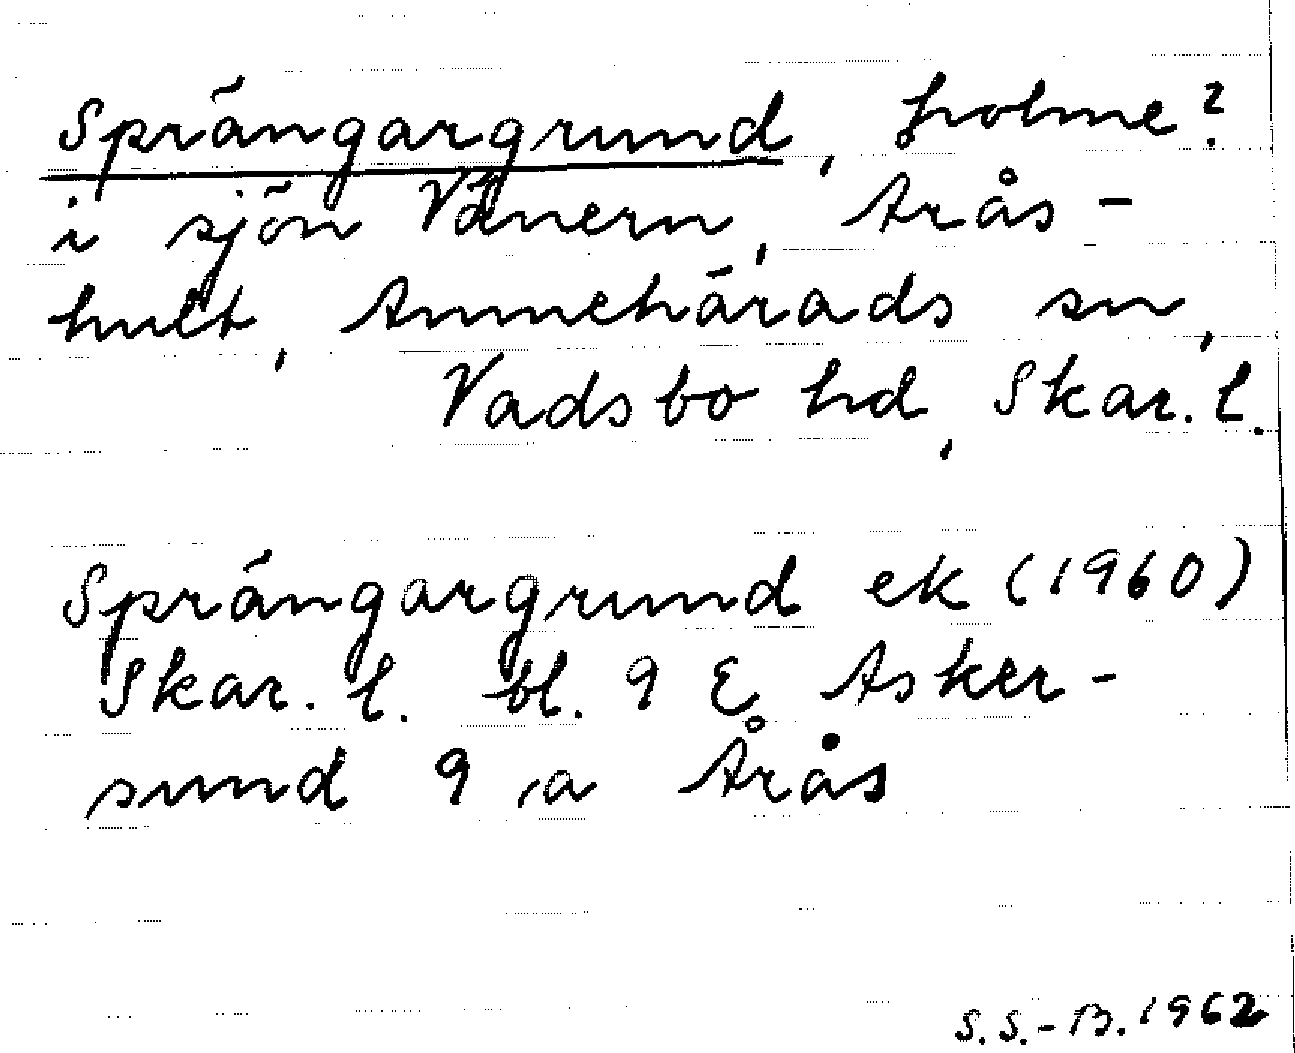 Sprängargrund, holme?
i sjön Vänern, Arås-
hult, Amnehärads sn,
Vadsbo hd, Skar. l.
Sprängargrund ek (1960)
Skar. l. bl. 9 E Asker-
sund 9 a Årås
S.S.-B. 1962